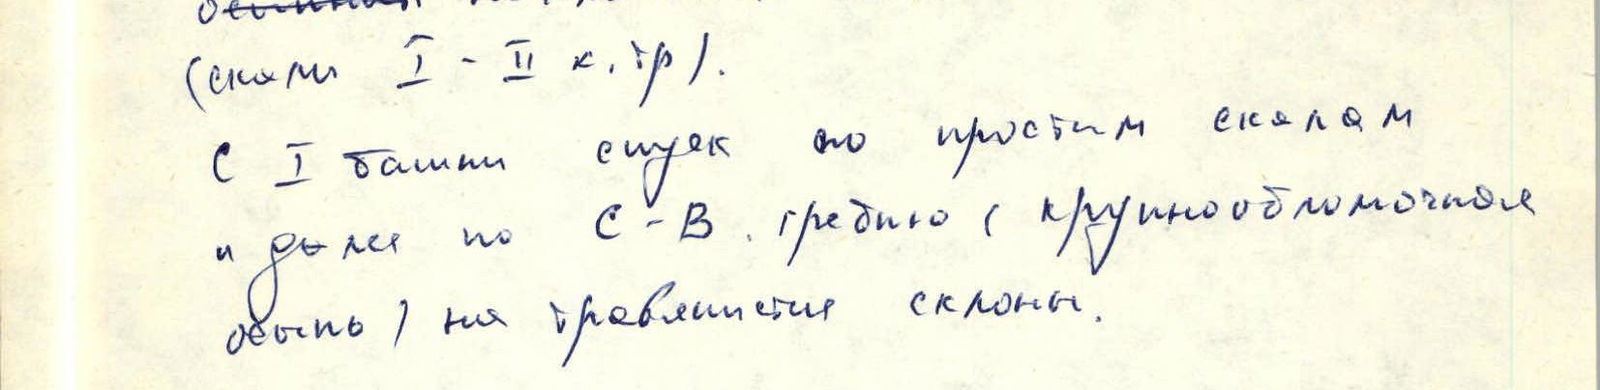 (скалы I - II к.тр).
С I башни спуск по простым скалам
и далее по С-В. гребню (крупнообломочная
осыпь) на травянистые склоны.